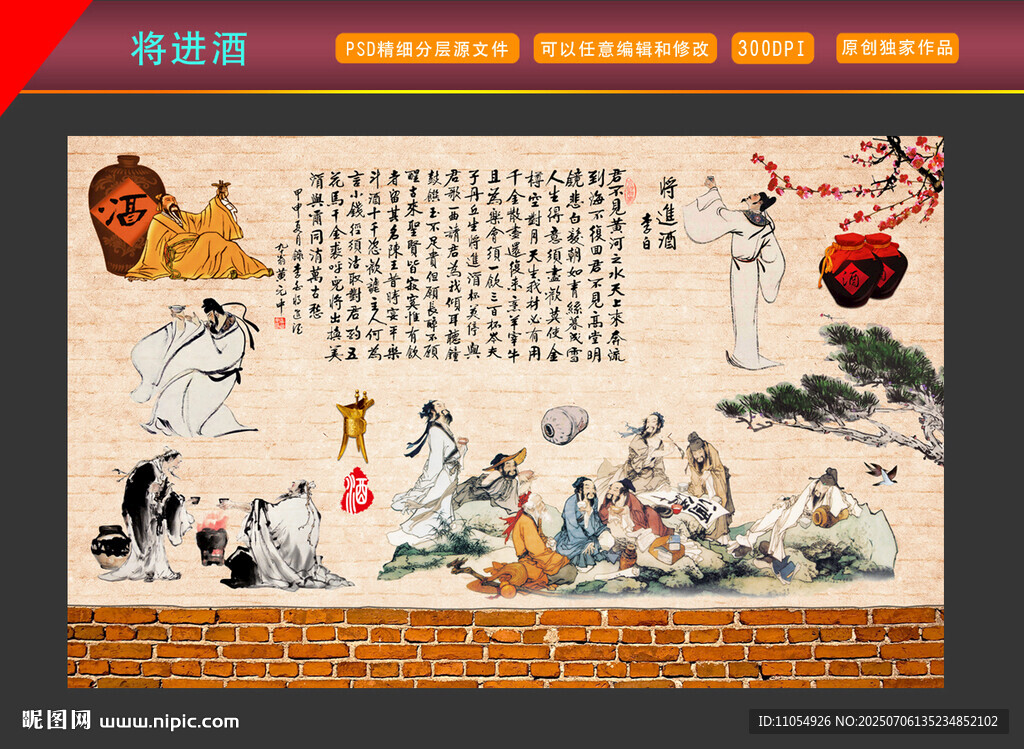 将进酒
PSD精细分层源文件
可以任意编辑和修改
300DPI
原创独家作品
將進酒
李白
君不見黃河之水天上來奔流
到海不復回君不見高堂明
鏡悲白髮朝如青絲暮成雪
人生得意須盡歡莫使金
樽空對月天生我材必有用
千金散盡還復來烹羊宰牛
且為樂會須一飲三百杯岑夫
子丹丘生將進酒杯莫停與
君歌一曲請君為我傾耳聽鐘
鼓饌玉不足貴但願長醉不願
醒古來聖賢皆寂寞惟有飲
者留其名陳王昔時宴平樂
斗酒十千恣歡謔主人何為
言小錢徑須沽取對君酌五
花馬千金裘呼兒將出換美
酒與爾同消萬古愁
甲申夏月錄李白將進酒
酒
酒
酒
酒
昵图网 www.nipic.com
ID:11054926 NO:20250706135234852102